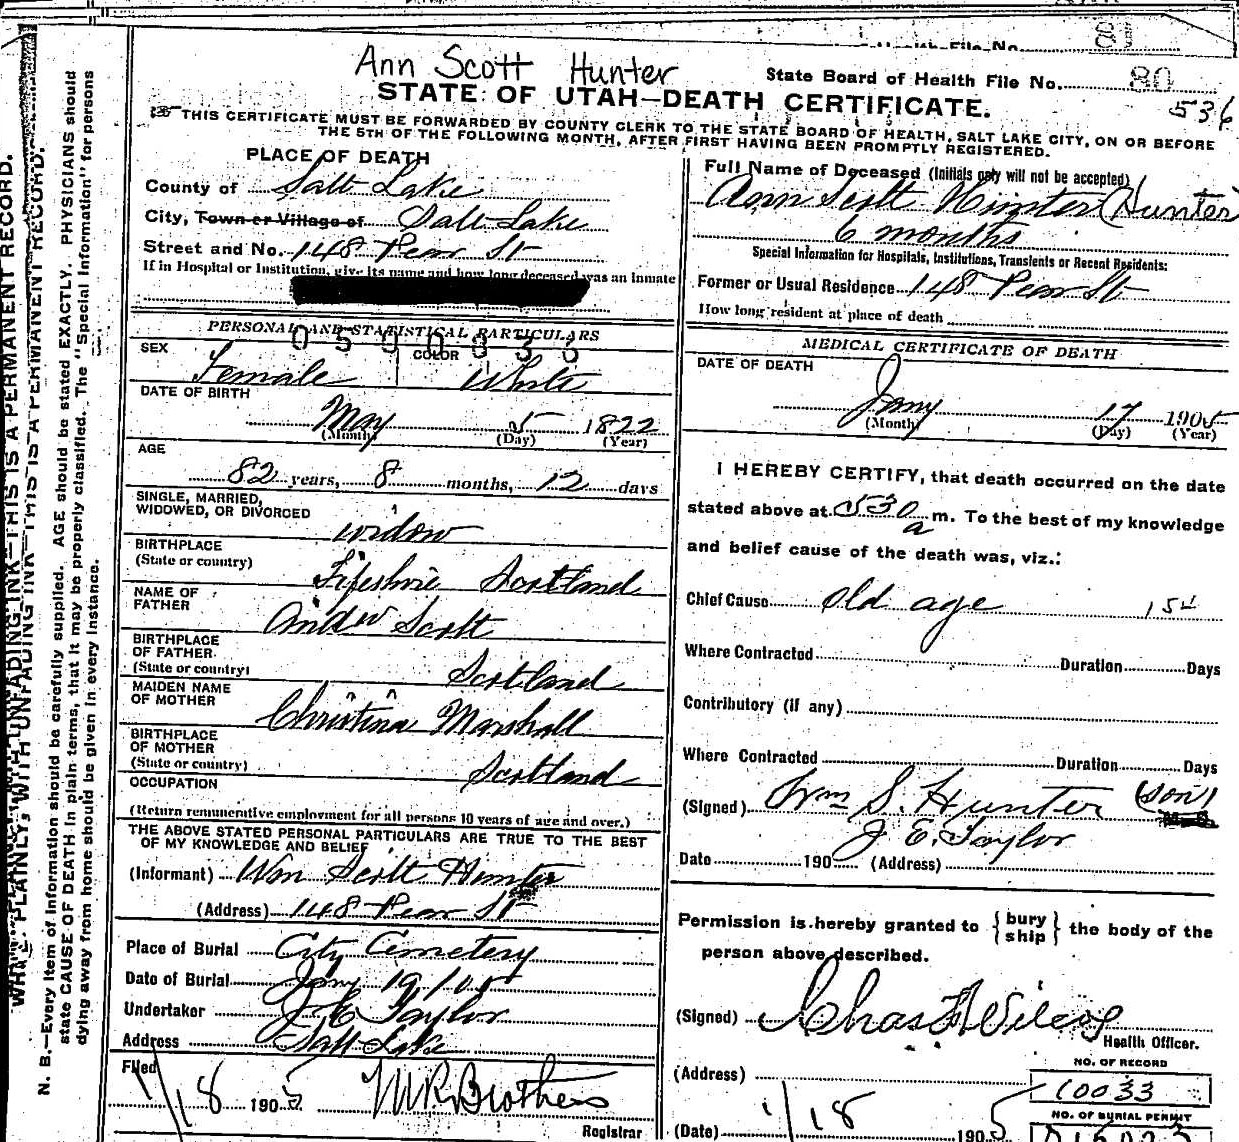 Health File No. 80
Ann Scott Hunter
State Board of Health File No. 80
536
STATE OF UTAH—DEATH CERTIFICATE.
THIS CERTIFICATE MUST BE FORWARDED BY COUNTY CLERK TO THE STATE BOARD OF HEALTH, SALT LAKE CITY, ON OR BEFORE
THE 5TH OF THE FOLLOWING MONTH, AFTER FIRST HAVING BEEN PROMPTLY REGISTERED.
WRITE PLAINLY, WITH UNFADING INK—THIS IS A PERMANENT RECORD.
N. B.—Every item of information should be carefully supplied. AGE should be stated EXACTLY. PHYSICIANS should
state CAUSE OF DEATH in plain terms, that it may be properly classified. The "Special Information" for persons
dying away from home should be given in every instance.
PLACE OF DEATH
County of Salt Lake
City, Town or Village of Salt Lake
Street and No. 148 Pear St
If in Hospital or Institution, give its name and how long deceased was an inmate
PERSONAL AND STATISTICAL PARTICULARS
SEX Female
COLOR White
DATE OF BIRTH
May 5 1822
(Month) (Day) (Year)
AGE
82 years, 8 months, 12 days
SINGLE, MARRIED,
WIDOWED, OR DIVORCED widow
BIRTHPLACE
(State or country) Fifeshire Scotland
NAME OF
FATHER Andrew Scott
BIRTHPLACE
OF FATHER
(State or country) Scotland
MAIDEN NAME
OF MOTHER Christina Marshall
BIRTHPLACE
OF MOTHER
(State or country) Scotland
OCCUPATION
(Return remunerative employment for all persons 10 years of age and over.)
THE ABOVE STATED PERSONAL PARTICULARS ARE TRUE TO THE BEST
OF MY KNOWLEDGE AND BELIEF
(Informant) Wm Scott Hunter
(Address) 148 Pear St
Place of Burial City Cemetery
Date of Burial Jany 19/05
Undertaker J E Taylor
Address Salt Lake
Filed
1/18 1905 Brothers
Registrar
Full Name of Deceased (Initials only will not be accepted)
Ann Scott Hunter (Hunter)
6 months
Special Information for Hospitals, Institutions, Transients or Recent Residents:
Former or Usual Residence 148 Pear St
How long resident at place of death
MEDICAL CERTIFICATE OF DEATH
DATE OF DEATH
Jany 17 1905
(Month) (Day) (Year)
I HEREBY CERTIFY, that death occurred on the date
stated above at 530 a m. To the best of my knowledge
and belief cause of the death was, viz.:
Chief Cause old age 154
Where Contracted Duration Days
Contributory (if any)
Where Contracted Duration Days
(Signed) Wm S. Hunter (son)
J. E. Taylor
Date 190 (Address)
Permission is hereby granted to { bury ship } the body of the
person above described.
(Signed) Chas F Wilcox
Health Officer.
(Address)
NO. OF RECORD
10033
NO. OF BURIAL PERMIT
(Date) 1/18 1905